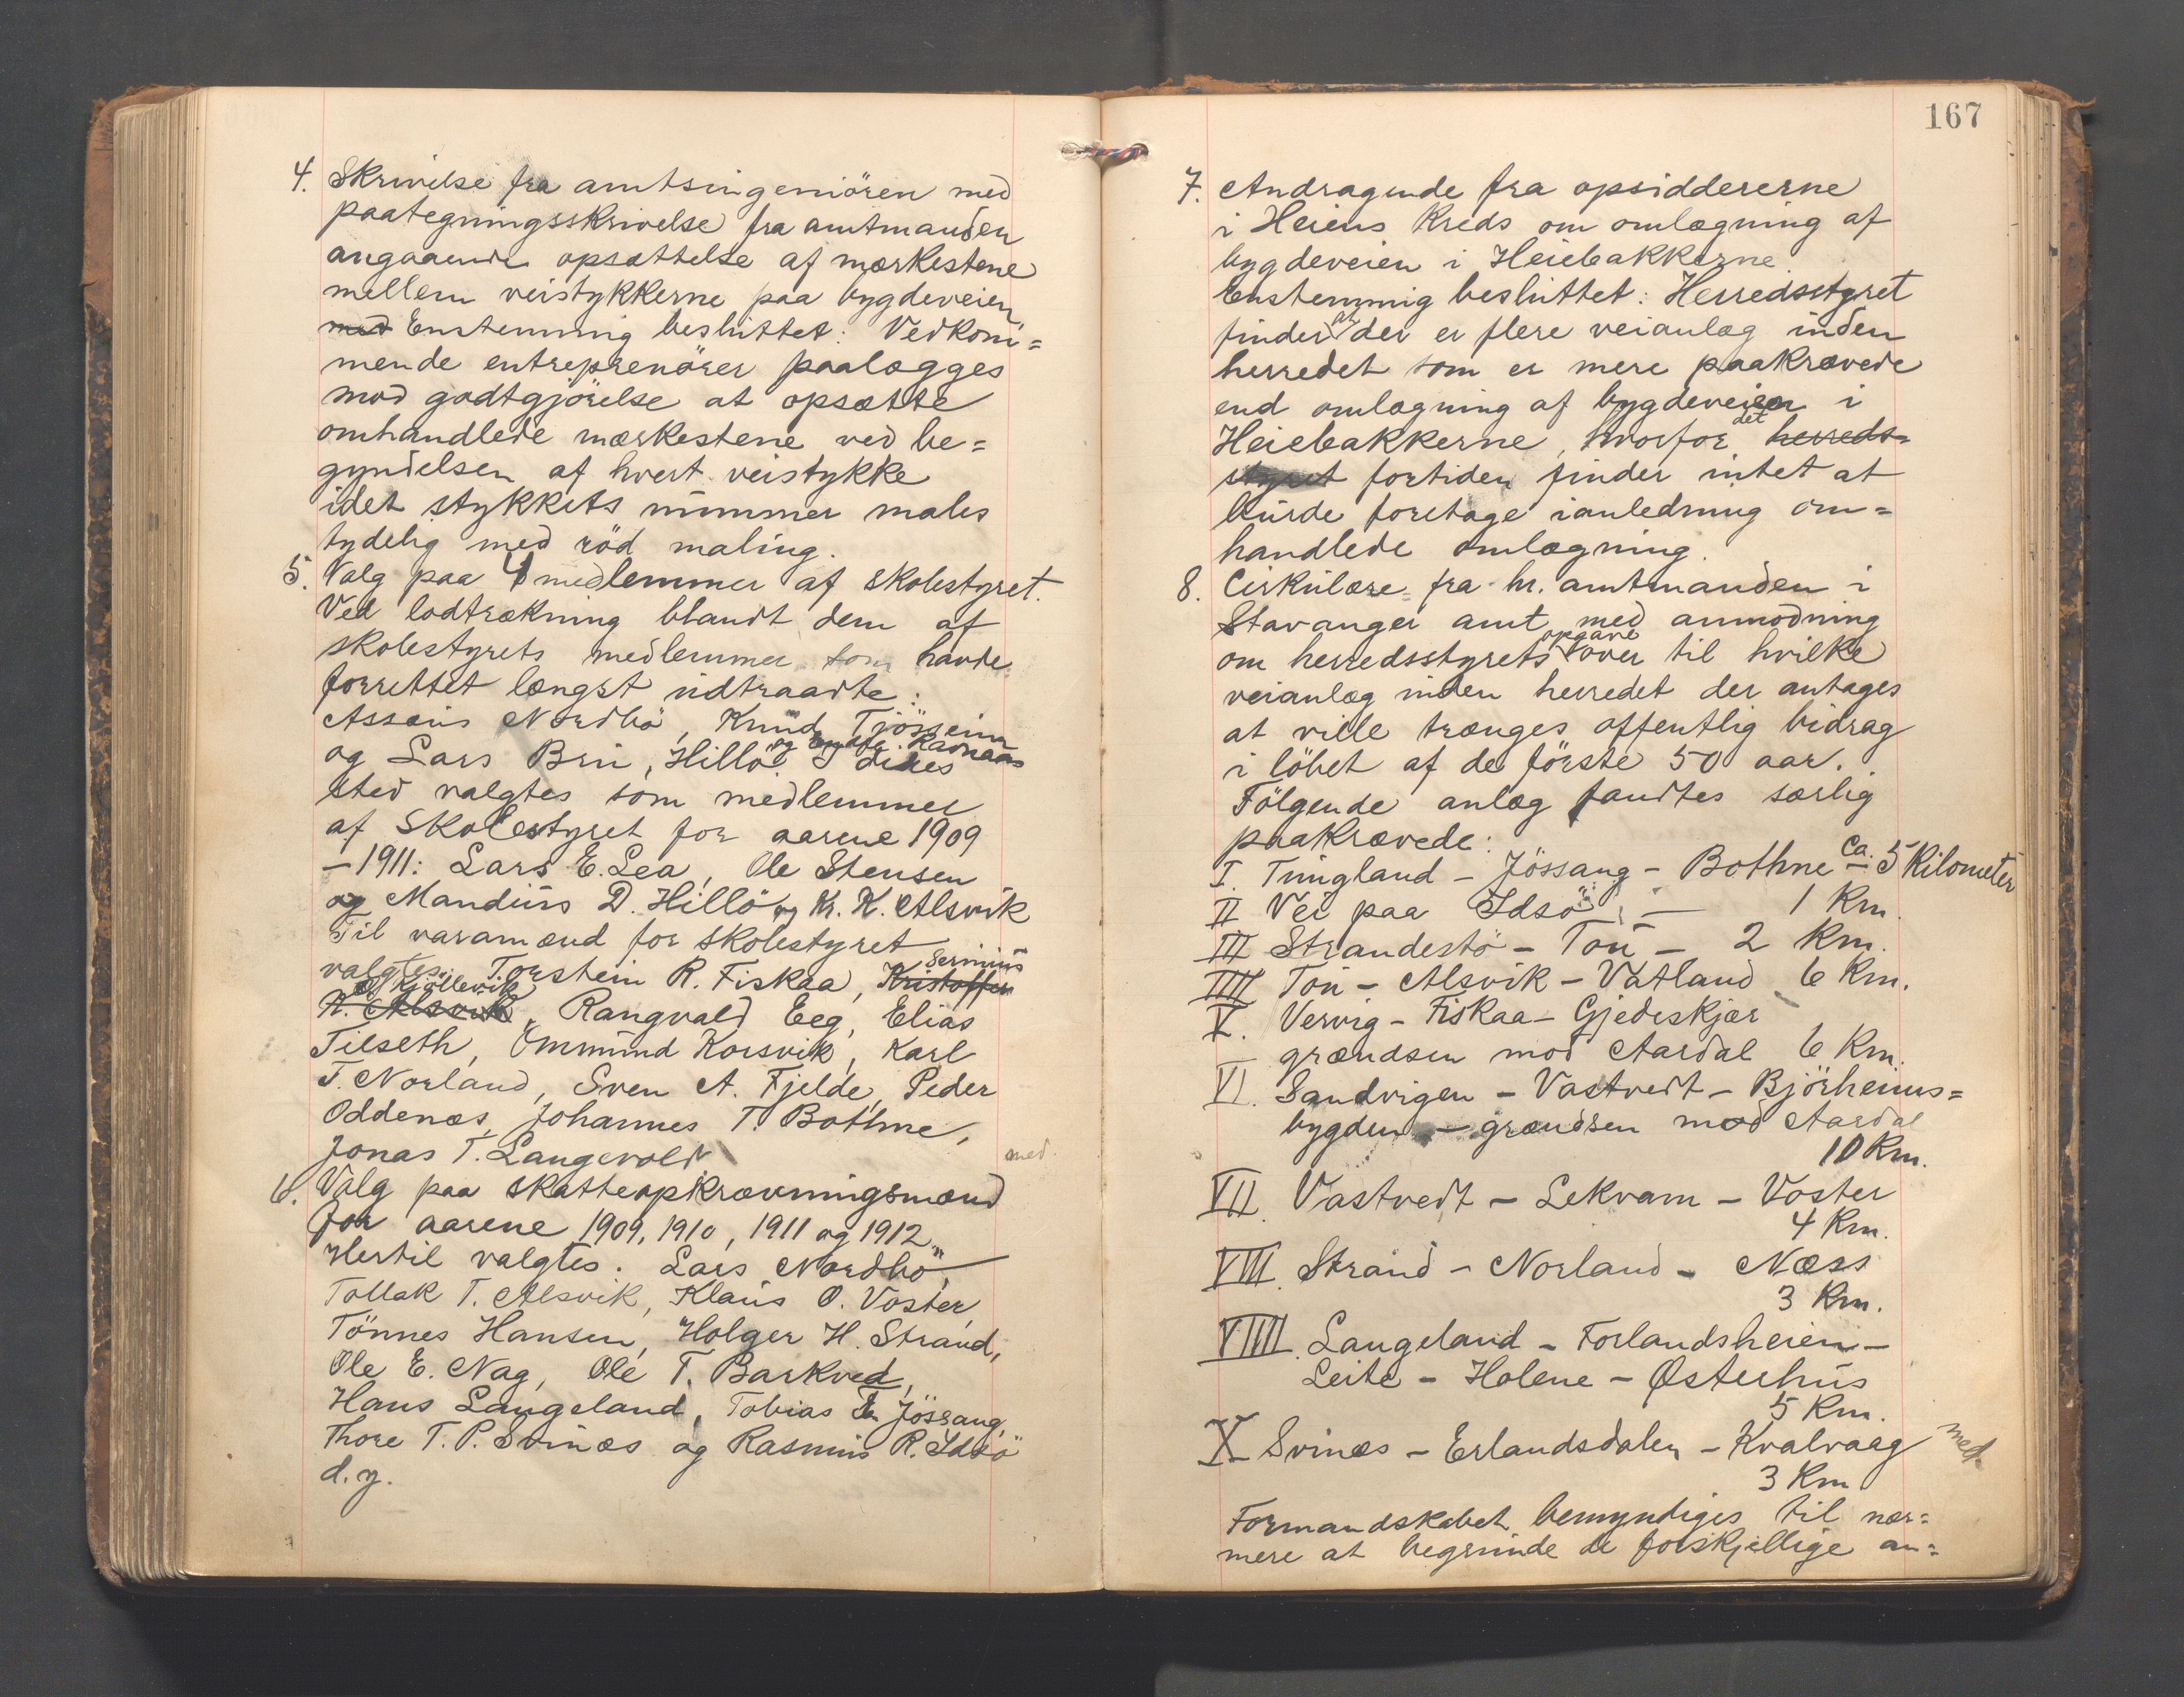 4. Skrivelse fra amtsingeniören med
paategningsskrivelse fra amtmanden
angaaende opsættelse af mærkestene
mellem veistykkerne paa bygdeveien
med Enstemmig besluttet: Vedkom=
mende entreprenörer paalægges
mod godtgjörelse at opsætte
omhandlede mærkestene ved be=
gyndelsen af hvert veistykke
idet stykkets nummer males
tydelig med röd maling.
5. Valg paa 4 medlemmer af skolestyret.
Ved lodtrækning blandt dem af
skolestyrets medlemmer som havde
forrettet længst udtraadte:
Assæus Nordbö, Knud Tjösseim
og Lars Bru, Hillö. og Ravnaas I deres
sted valgtes som medlemmer
af Skolestyret for aarene 1909
– 1911: Lars E. Lea, Ole Stensen
og Mandius D. Hillö og Kr. K. Alsvik
Til varamænd for skolestyret
valgtes: Torstein R. Fiskaa, Kristoffer Serinius
K. Alsvik Kjöllevik, Rangvald Eeg, Elias
Tilseth, Ommund Korsvik, Karl
T. Norland, Sven A. Fjelde, Peder
Oddenæs, Johannes T. Bothne,
Jonas T. Langevold
med.
6. Valg paa skatteopkrævningsmænd
for aarene 1909, 1910, 1911 og 1912.
Hertil valgtes: Lars Nordbö,
Tollak T. Alsvik, Klaus O. Voster,
Tönnes Hansen, Holger H. Strand,
Ole E. Nag, Ole T. Barkved,
Hans Langeland, Tobias Jössang,
Thore T. P. Svines og Rasmus R. Idsö
d. y.
167
7. Andragende fra opsiddererne
i Heiens Kreds om omlægning af
bygdeveien i Heiebakkerne.
Enstemmig besluttet: Herredsstyret
finder at der er flere veianlæg inden
herredet som er mere paakrævede
end omlægning af bygdeveien i
Heiebakkerne, hvorfor det herreds=
styret fortiden finder intet at
burde foretage ianledning om=
handlede omlægning.
8. Cirkulære fra hr. amtmanden i
Stavanger amt med anmodning
om herredsstyrets opgave over til hvilke
veianlæg inden herredet der antages
at ville trænges offentlig bidrag
i löbet af de förste 50 aar.
Fölgende anlæg fandtes særlig
paakrævede:
I. Tungland – Jössang – Bothne ca. – 5 Kilometer
II Vei paa Idsö – 1 Km.
III Strandestö – Tou – 2 Km.
IIII Tou – Alsvik – Vatland 6 Km.
V. Vervig – Fiskaa – Gjedeskjær
grændsen mod Aardal 6 Km.
VI. Sandvigen – Vastvedt – Björheims=
bygden – grændsen mod Aardal
10 Km.
VII. Vastvedt – Lekvam – Voster
4 Km.
VIII. Strand – Norland – Næss
3 Km.
VIIII. Langeland – Forlandsheien –
Leite – Holene – Østerhus
5 Km.
X Svines – Erlandsdalen – Kvalvaag
3 Km
med
Formandskabet bemyndiges til nær=
mere at begrunde de forskjellige an=